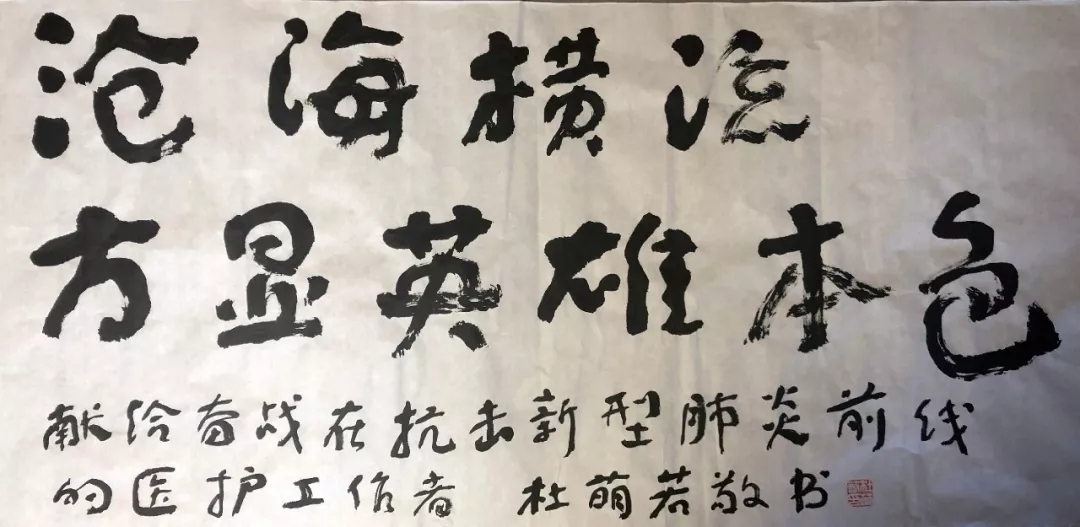 沧海横流
方显英雄本色
献给奋战在抗击新型肺炎前线
的医护工作者 杜萌若敬书